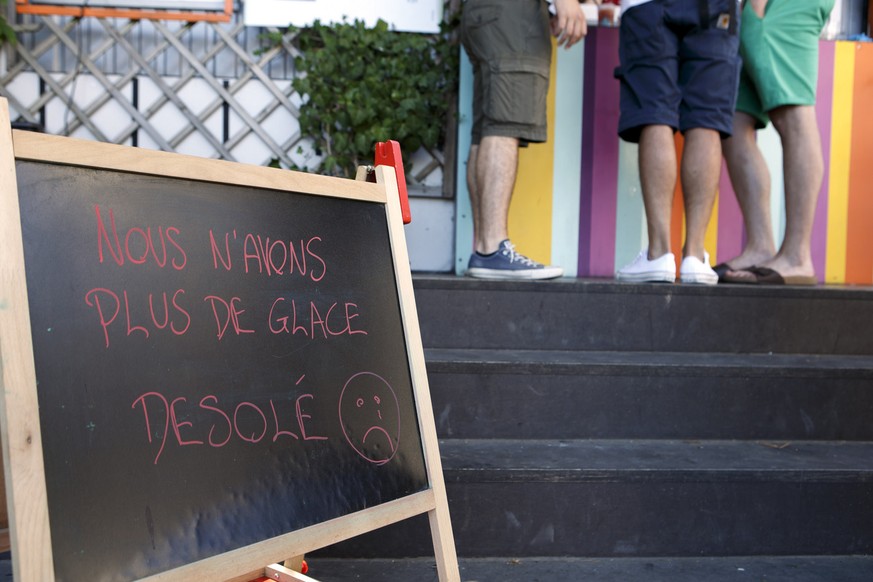 NOUS N'AVONS
PLUS DE GLACE
DESOLÉ